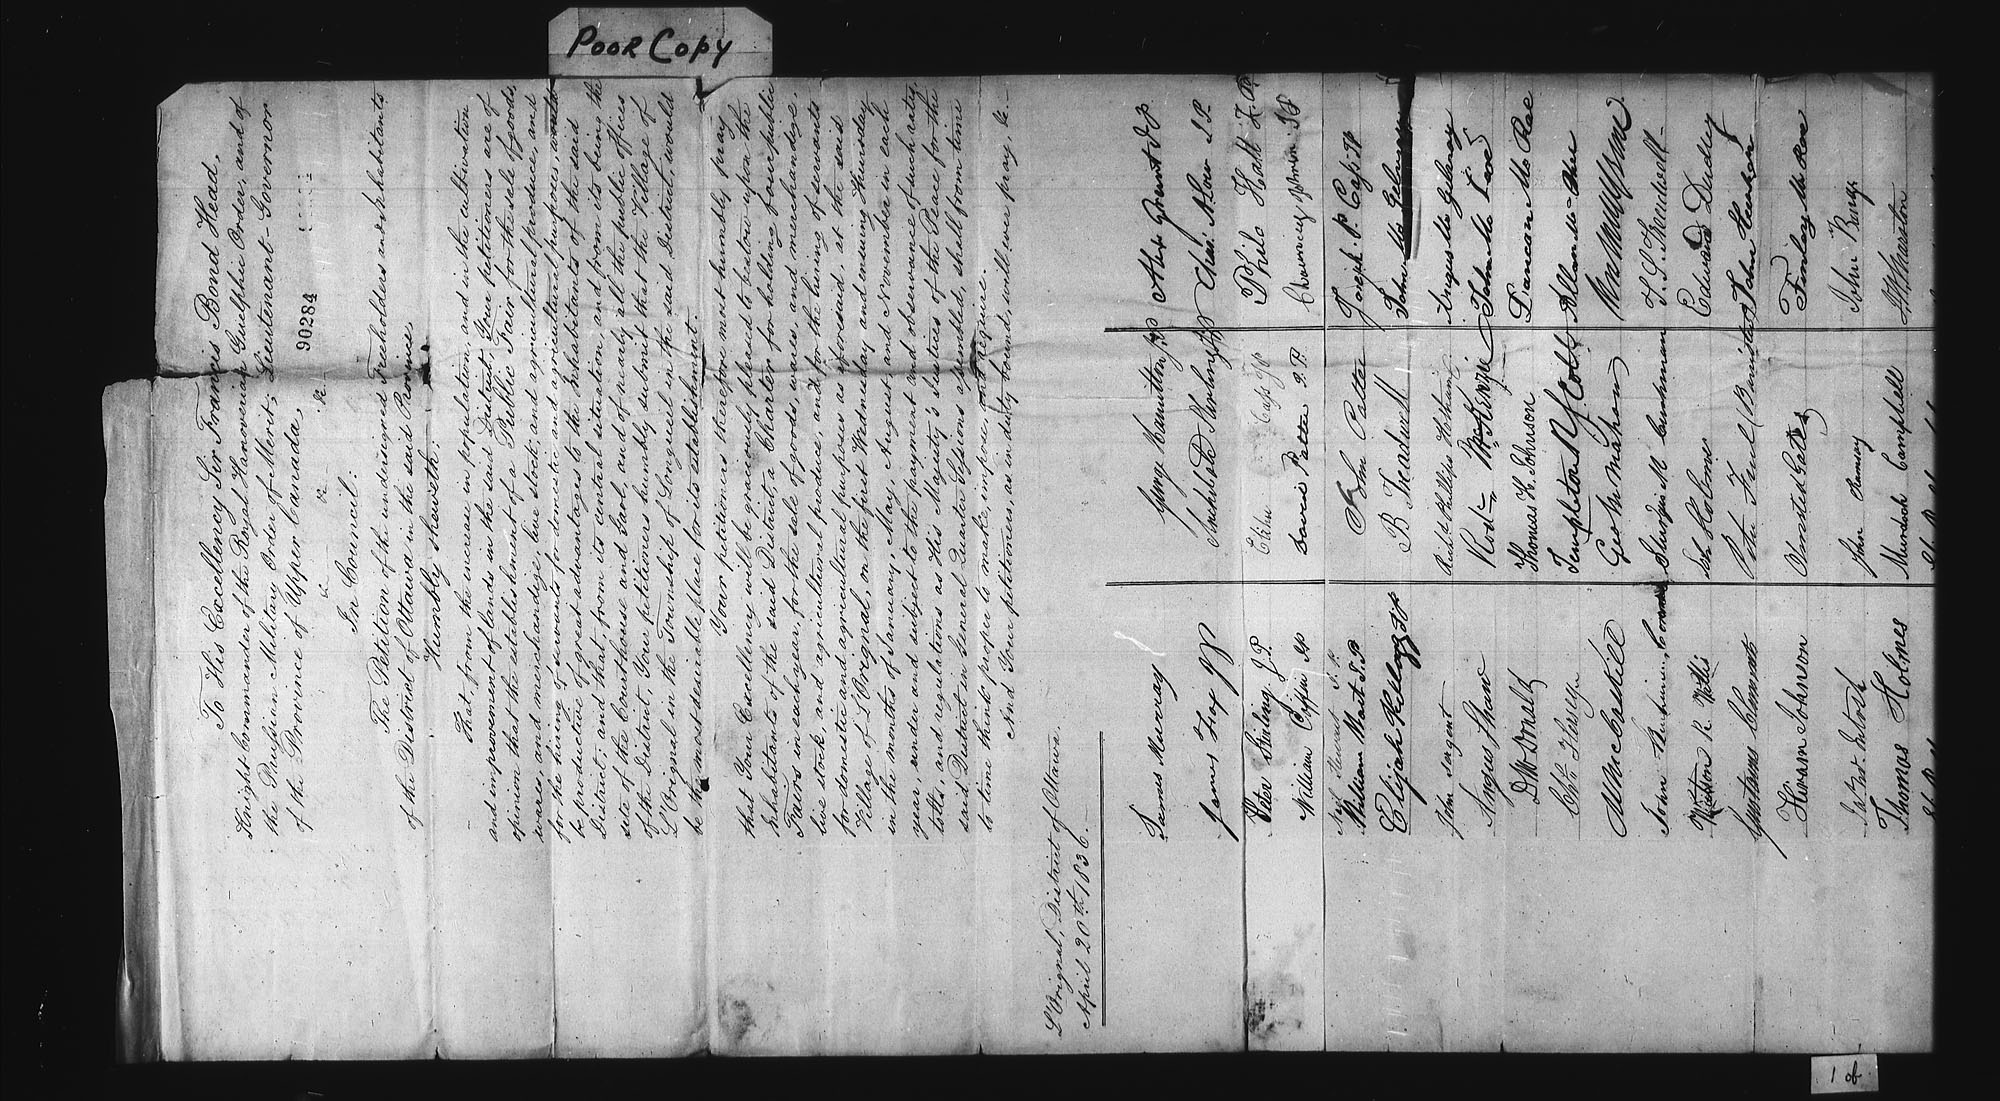 POOR COPY
To His Excellency Sir Francis Bond Head,
Knight Commander of the Royal Hanoverian Guelphic Order, and of
the Prussian Military Order of Merit; Lieutenant-Governor
of the Province of Upper Canada,
&c &c &c
90284
In Council:
The Petition of the undersigned Freeholders and inhabitants
of the District of Ottawa in the said Province
Humbly sheweth:
That, from the increase in population, and in the cultivation
and improvement of lands in the said District, Your petitioners are of
opinion that the establishment of a Public Fair for the sale of goods,
wares, and merchandize, live stock, and agricultural produce, and
for the hiring of servants for domestic and agricultural purposes, would
be productive of great advantages to the inhabitants of the said
District; and that from its central situation, and from its being the
site of the Court-house and Gaol, and of nearly all the public offices
of the District, Your petitioners humbly submit that the Village of
L'Orignal in the Township of Longueil in the said District, would
be the most desirable place for its establishment.
Your petitioners therefore most humbly pray
that Your Excellency will be graciously pleased to bestow upon the
inhabitants of the said District, a Charter for holding four public
Fairs in each year, for the sale of goods, wares, and merchandize,
live stock, and agricultural produce, and for the hiring of servants
for domestic and agricultural purposes as aforesaid, at the said
Village of L'Orignal, on the first Wednesday and ensuing Thursday
in the months of January, May, August and November in each
year, under and subject to the payment and observance of such entry,
tolls, and regulations as His Majesty's Justices of the Peace for the
said District in General Quarter Sessions assembled, shall from time
to time think proper to make, impose, and require.
And Your petitioners, as in duty bound, will ever pray, &c.—
L'Orignal, District of Ottawa.
April 20th 1836.—
James Murray
James Fox JP
Peter Stirling J.P.
William Coffin JP
Neil Stewart J.P.
William Wait J.P
Elijah Kellogg JP
John Sargent
Angus Shaw
D McDonald
Chs. Hersey
John
R. Wells
Gustavus Clements
Hiram Johnson
Thomas Holmes
George Hamilton JP
Elihu Cass JP
David Pattee J.P.
John Pattee
B Treadwell
Richd Phillips Hotham
Rodk McKenzie
Thomas H. Johnson
Geo McMahon
Olmsted Gates
John Chamney
Murdoch Campbell
Alex Grant JP
Chas. A Low J.P.
Philo Hall J.P.
Chauncey Johnson JP
Joseph P Cass JP
Angus McGillivray
Duncan McRae
C. P. Treadwell
Edward Dudley
Finlay McRae
John
Wharton